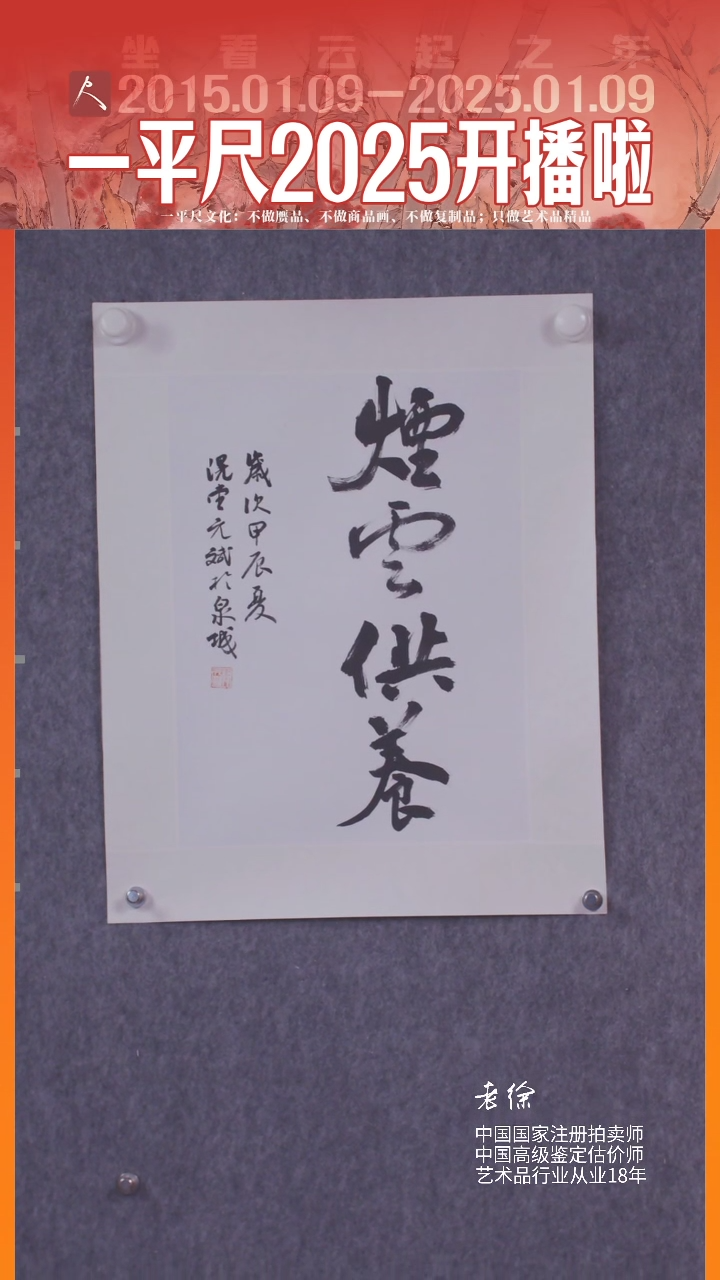 坐看云起之年
2015.01.09—2025.01.09
一平尺2025开播啦
一平尺文化：不做赝品、不做商品画、不做复制品；只做艺术品精品
煙雲供養
歲次甲辰夏
滉堂元斌於泉城
老徐
中国国家注册拍卖师
中国高级鉴定估价师
艺术品行业从业18年